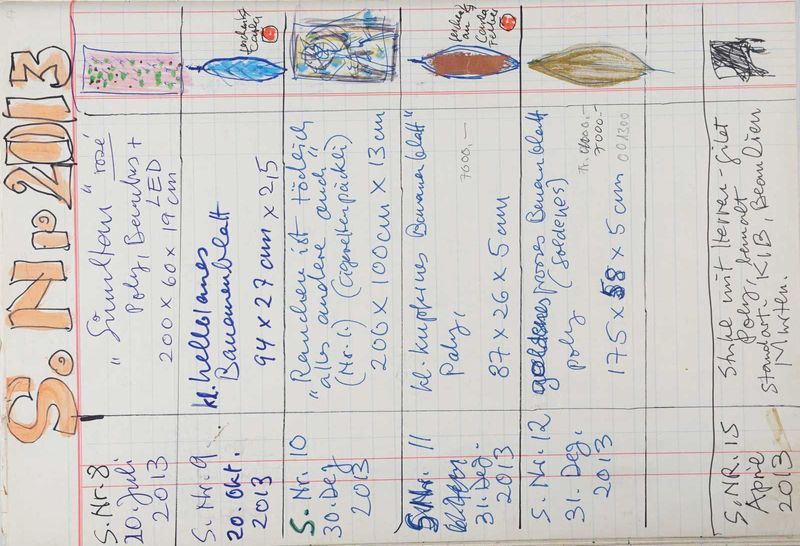 S. Nr 2013
S. Nr. 8
20. Juli
2013
"Simultan" rosé
Poly, Bambus +
LED
200 x 60 x 19 cm
S. Nr. 9
20. Okt.
2013
kl. hellblaues
Bananenblatt
94 x 27 cm x 21,5
S. Nr. 10
30. Dez
2013
"Rauchen ist tödlich
alles andere auch"
(Nr. 1.) (Cigarettenpäckli)
200 x 100 cm x 13 cm
S. Nr. 11
31. Dez.
2013
kl. kupfernes Bananenblatt"
Poly,
7000.—
87 x 26 x 5 cm
Carla
S. Nr. 12
31. Dez.
2013
grosses Bananenblatt
poly (Goldenes)
7000.-
001300
175 x 58 x 5 cm
S. NR. 15
April
2013
Stuhl mit Herren-Gilet
Poly, bemalt
Standort: KIB, Beaulieu
Murten.